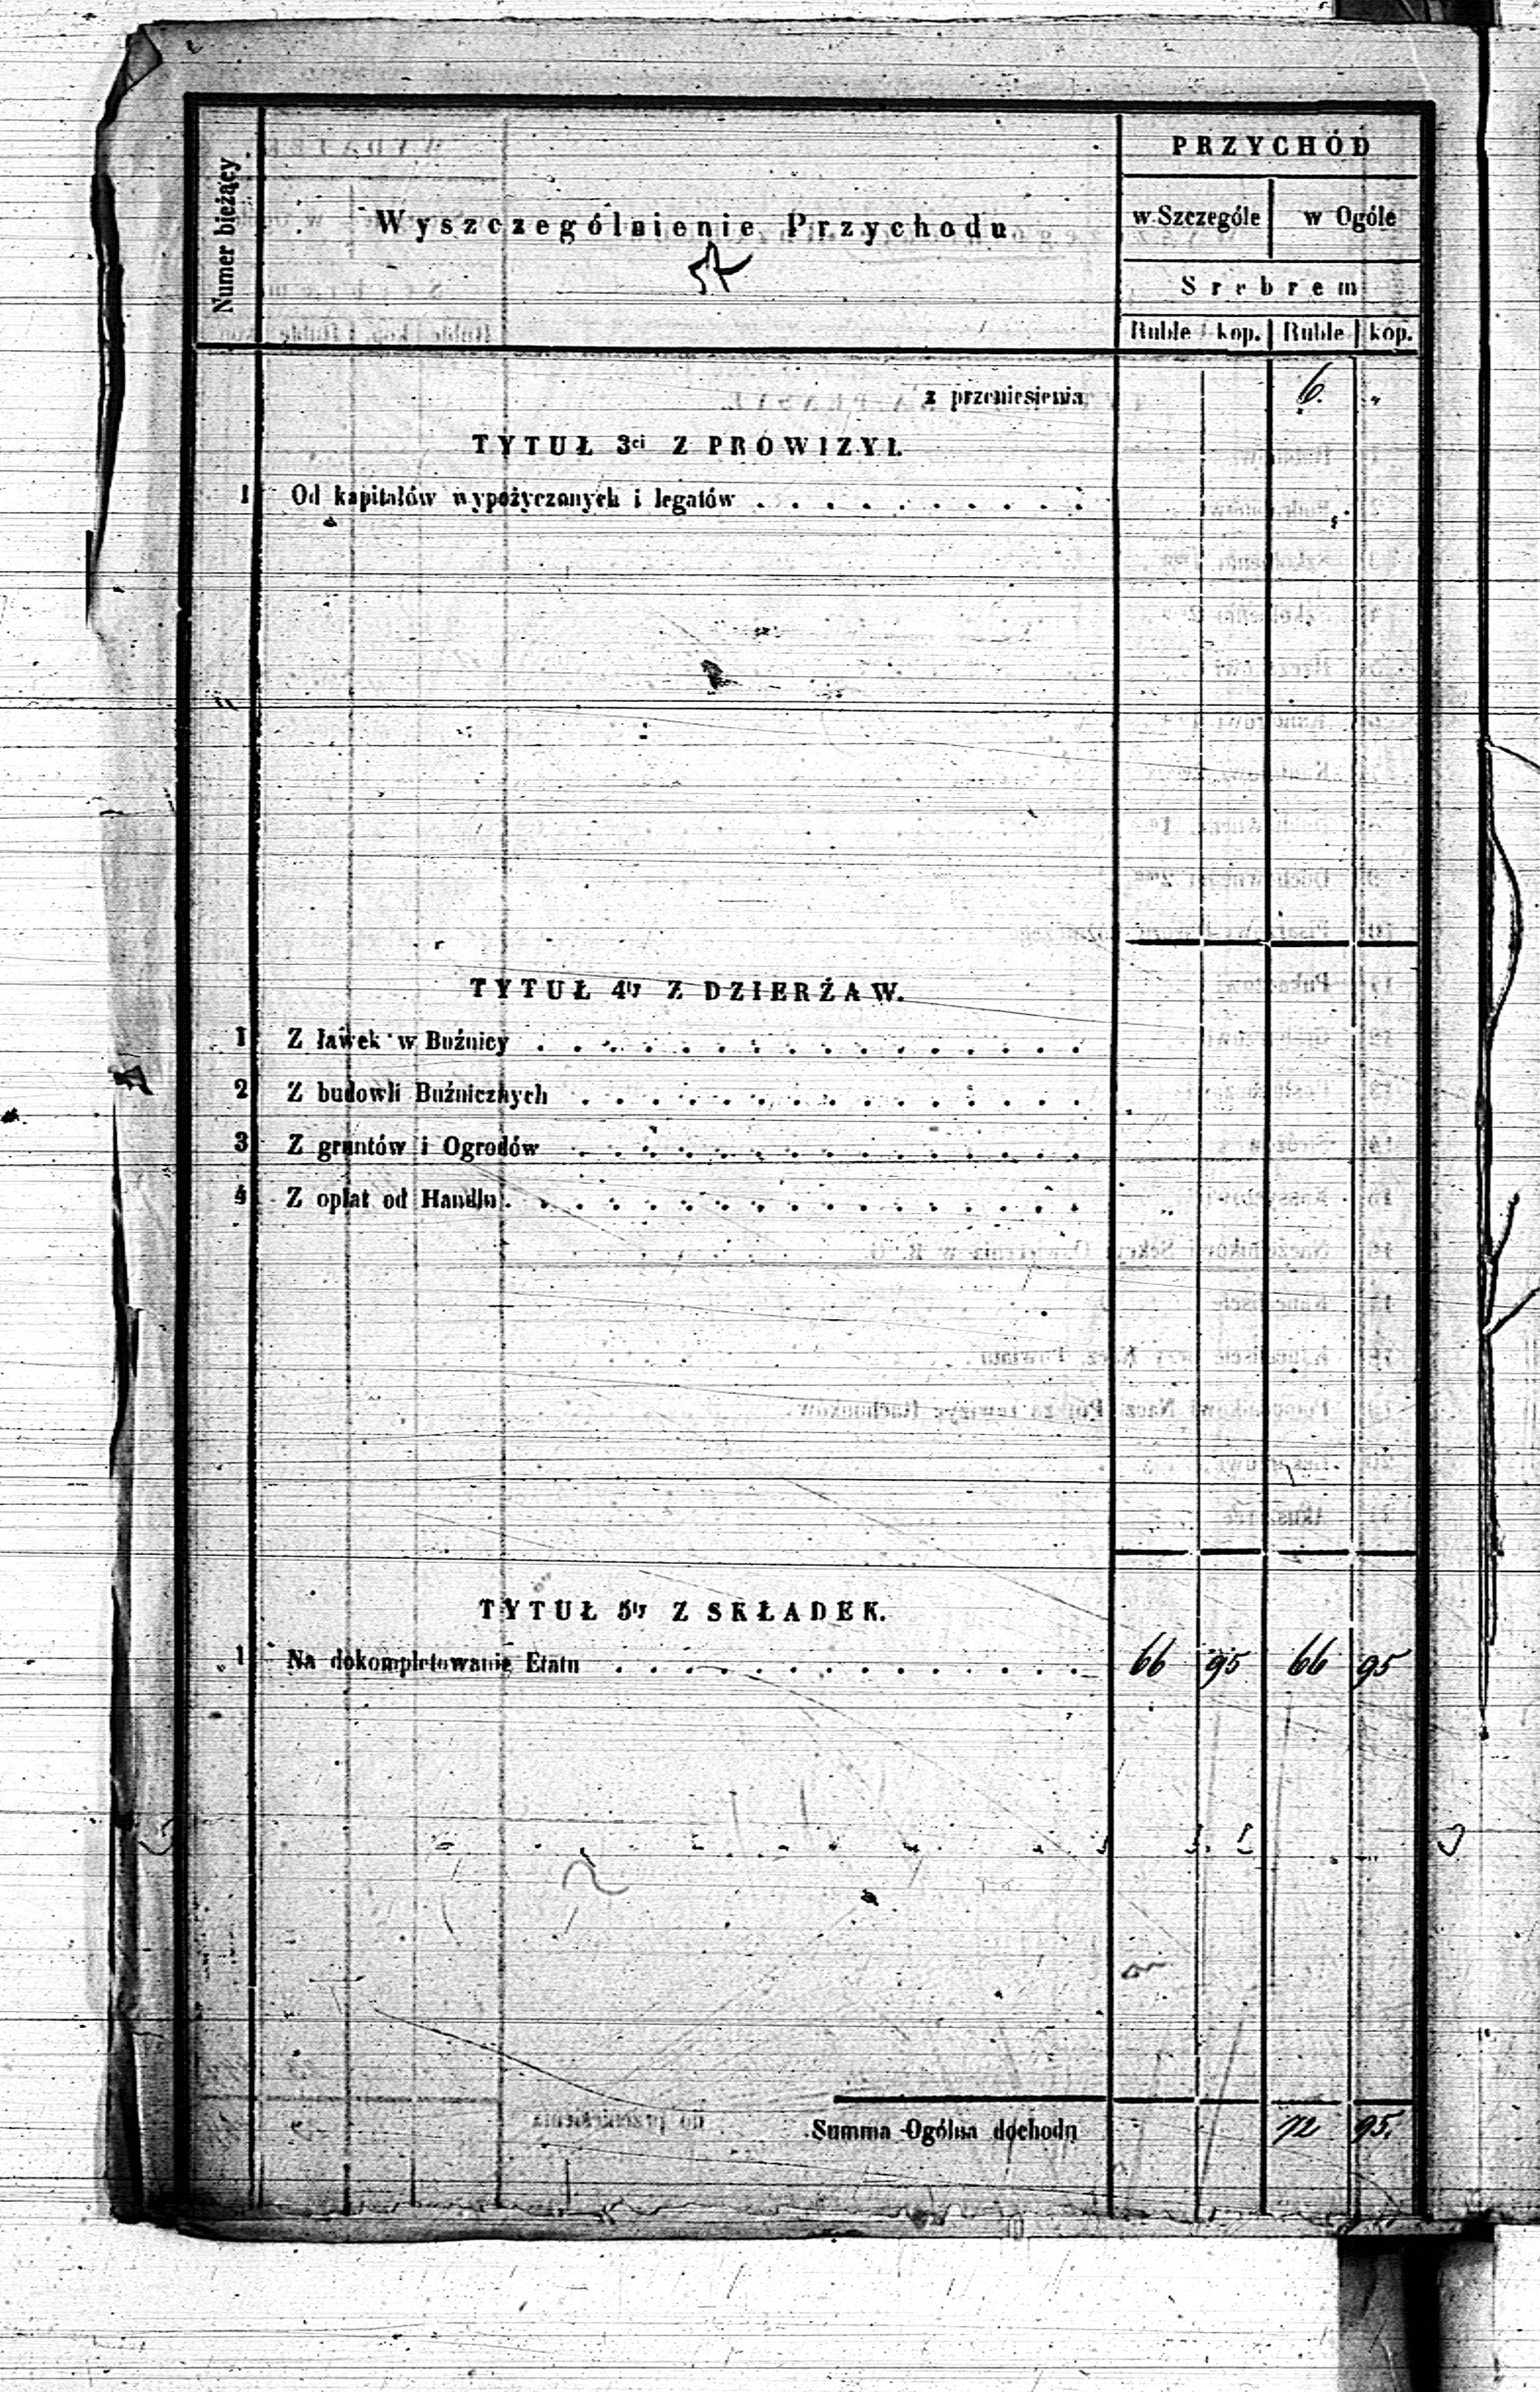 Numer bieżący
Wyszczególnienie Przychodu
PRZYCHÓD
w Szczególe w Ogóle
Srebrem
Ruble kop. Ruble kop.
z przeniesienia 6. "
TYTUŁ 3ci Z PROWIZYI.
1 Od kapitałów wypożyczonych i legatów . . . . . . . . .
TYTUŁ 4ty Z DZIERŻAW.
1 Z ławek w Buźnicy . . . . . . . . . . . . . . .
2 Z budowli Buźnicznych . . . . . . . . . . . . . .
3 Z gruntów i Ogrodów . . . . . . . . . . . . . .
4 Z opłat od Handlu . . . . . . . . . . . . . . .
TYTUŁ 5ty Z SKŁADEK.
1 Na dokompletowanie Etatu . . . . . . . . . . . . . 66 95 66 95
Summa Ogólna dochodu 72 95.